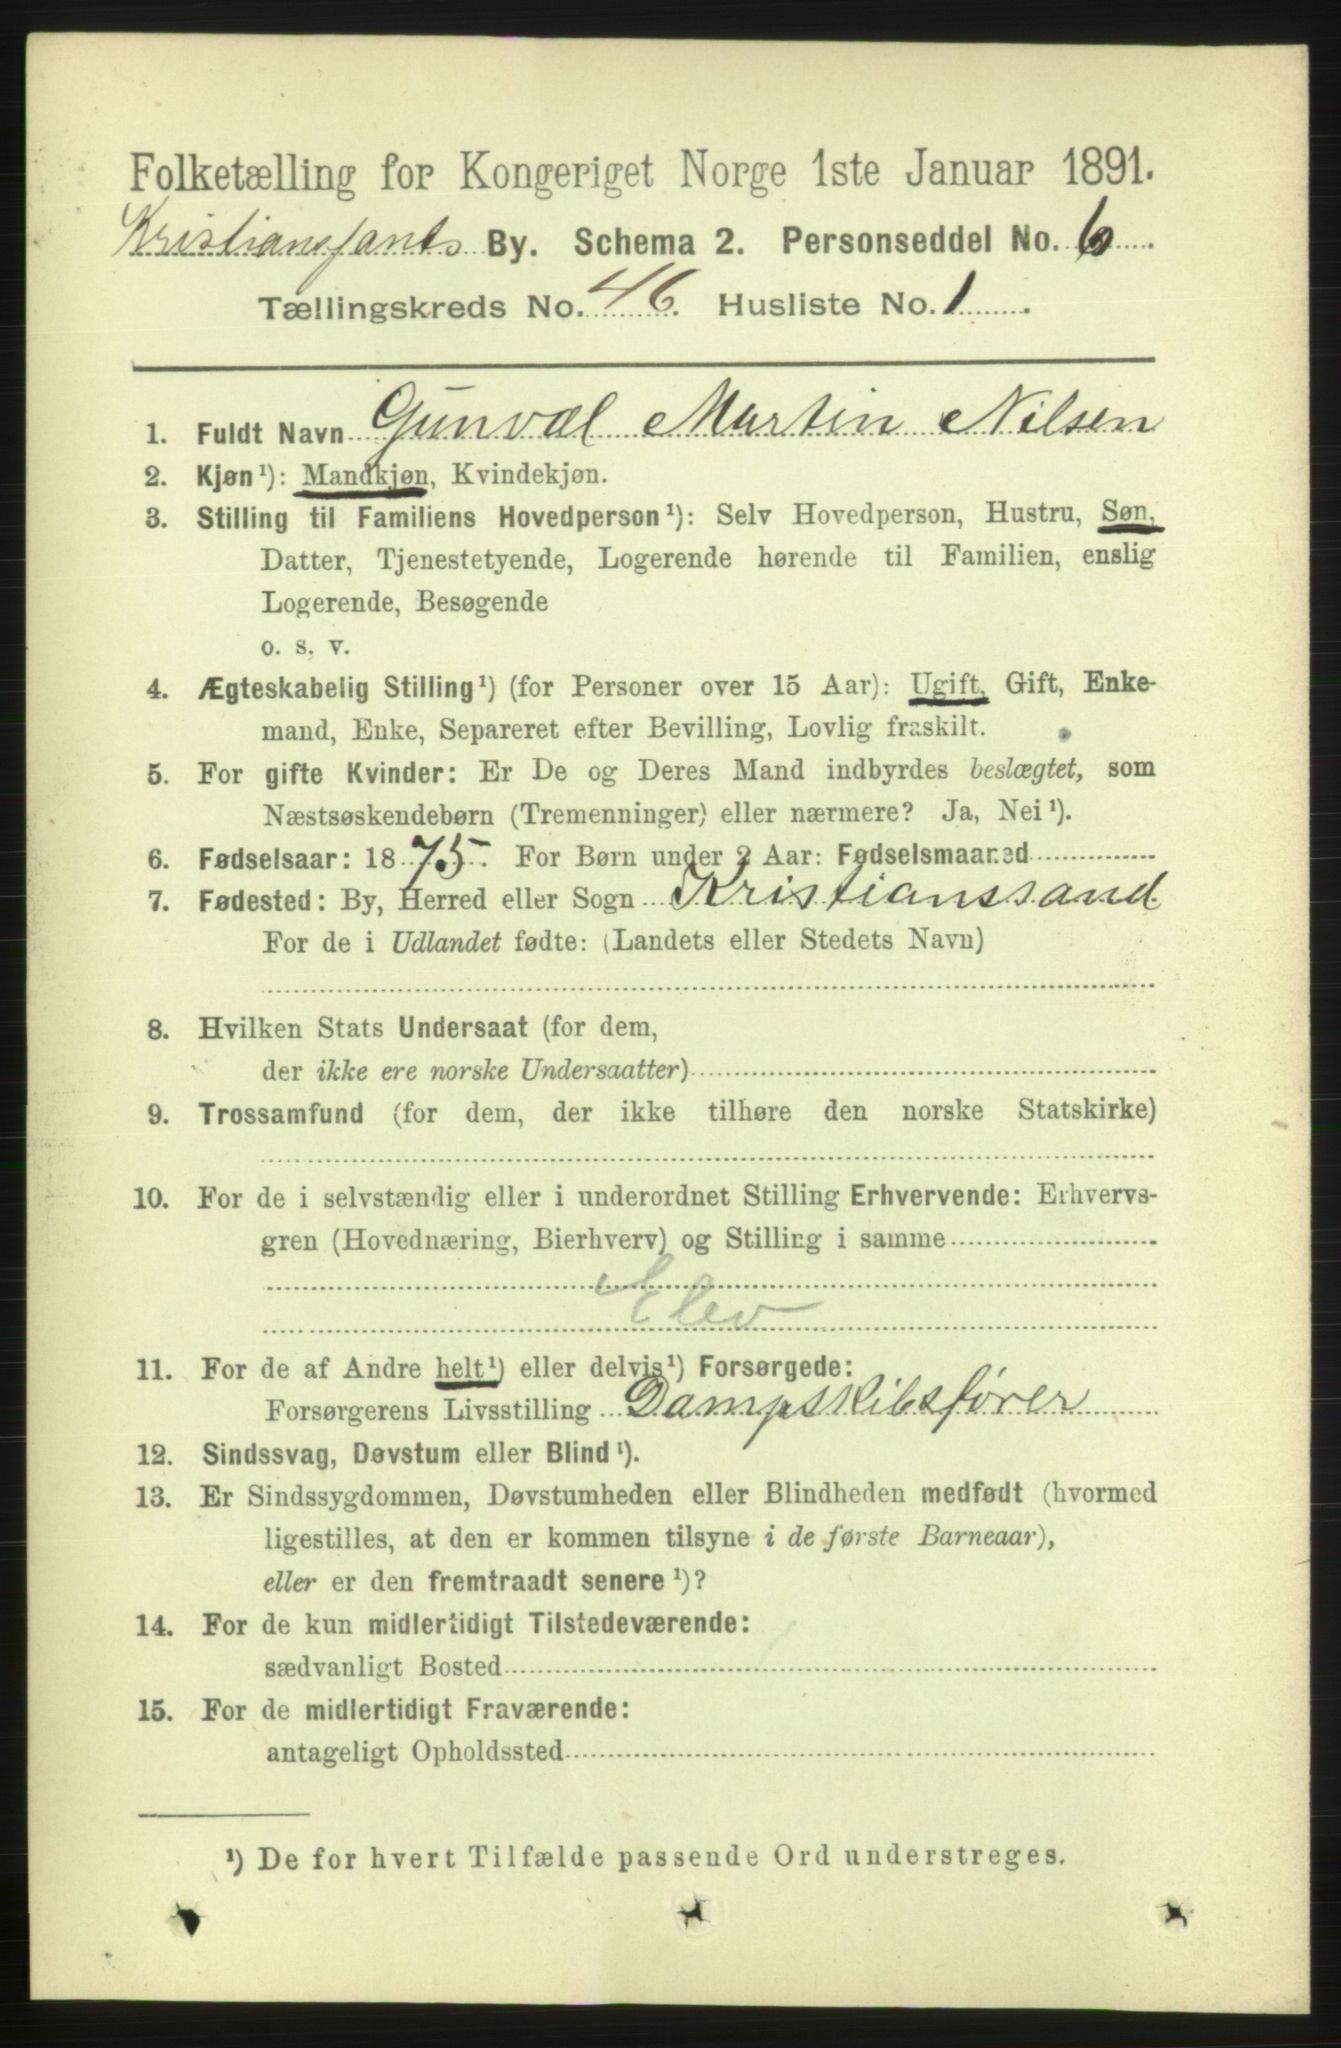 Folketælling for Kongeriget Norge 1ste Januar 1891.
Kristianssands By. Schema 2. Personseddel No. 6.
Tællingskreds No. 46. Husliste No. 1.
1. Fuldt Navn Gunval Martin Nilsen
2. Kjøn¹): Mandkjøn, Kvindekjøn.
3. Stilling til Familiens Hovedperson¹): Selv Hovedperson, Hustru, Søn,
Datter, Tjenestetyende, Logerende hørende til Familien, enslig
Logerende, Besøgende
o. s. v.
4. Ægteskabelig Stilling¹) (for Personer over 15 Aar): Ugift, Gift, Enke-
mand, Enke, Separeret efter Bevilling, Lovlig fraskilt.
5. For gifte Kvinder: Er De og Deres Mand indbyrdes beslægtet, som
Næstsøskendebørn (Tremenninger) eller nærmere? Ja, Nei¹).
6. Fødselsaar: 1875. For Børn under 2 Aar: Fødselsmaaned
7. Fødested: By, Herred eller Sogn Kristianssand.
For de i Udlandet fødte: (Landets eller Stedets Navn)
8. Hvilken Stats Undersaat (for dem,
der ikke ere norske Undersaatter)
9. Trossamfund (for dem, der ikke tilhøre den norske Statskirke)
10. For de i selvstændig eller i underordnet Stilling Erhvervende: Erhvervs-
gren (Hovednæring, Bierhverv) og Stilling i samme
Elev
11. For de af Andre helt¹) eller delvis¹) Forsørgede:
Forsørgerens Livsstilling Dampskibsfører
12. Sindssvag, Døvstum eller Blind¹).
13. Er Sindssygdommen, Døvstumheden eller Blindheden medfødt (hvormed
ligestilles, at den er kommen tilsyne i de første Barneaar),
eller er den fremtraadt senere¹)?
14. For de kun midlertidigt Tilstedeværende:
sædvanligt Bosted
15. For de midlertidigt Fraværende:
antageligt Opholdssted
¹) De for hvert Tilfælde passende Ord understreges.